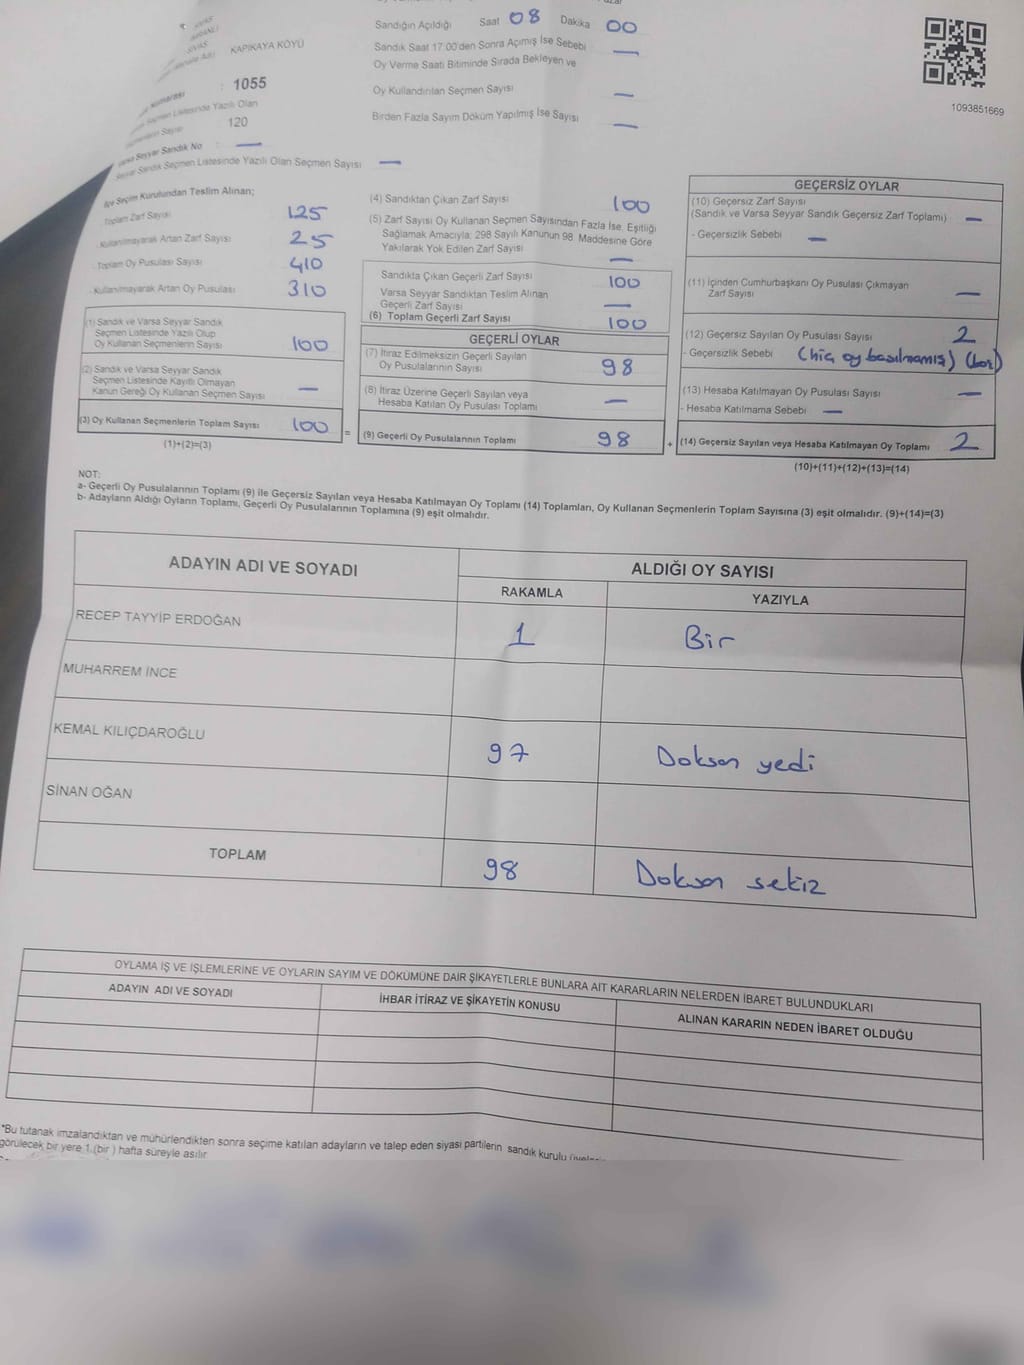 Sandığın Açıldığı Saat 08 Dakika 00
SİVAS
SİVAS
KAPIKAYA KÖYÜ
Sandık Saat 17:00'den Sonra Açımış İse Sebebi —
Oy Verme Saati Bitiminde Sırada Bekleyen ve
Oy Kullandırılan Seçmen Sayısı —
Birden Fazla Sayım Döküm Yapılmış İse Sayısı —
1093851669
: 1055
Seçmen Listesinde Yazılı Olan
120
Varsa Seyyar Sandık No : —
Seyyar Sandık Seçmen Listesinde Yazılı Olan Seçmen Sayısı —
İlçe Seçim Kurulundan Teslim Alınan;
Toplam Zarf Sayısı 125
- Kullanılmayarak Artan Zarf Sayısı 25
- Toplam Oy Pusulası Sayısı 410
- Kullanılmayarak Artan Oy Pusulası 310
(1) Sandık ve Varsa Seyyar Sandık
Seçmen Listesinde Yazılı Olup
Oy Kullanan Seçmenlerin Sayısı 100
(2) Sandık ve Varsa Seyyar Sandık
Seçmen Listesinde Kayıtlı Olmayan
Kanun Gereği Oy Kullanan Seçmen Sayısı —
(3) Oy Kullanan Seçmenlerin Toplam Sayısı 100 =
(1)+(2)=(3)
(4) Sandıktan Çıkan Zarf Sayısı 100
(5) Zarf Sayısı Oy Kullanan Seçmen Sayısından Fazla İse, Eşitliği
Sağlamak Amacıyla; 298 Sayılı Kanunun 98. Maddesine Göre
Yakılarak Yok Edilen Zarf Sayısı —
Sandıkta Çıkan Geçerli Zarf Sayısı 100
Varsa Seyyar Sandıktan Teslim Alınan
Geçerli Zarf Sayısı —
(6) Toplam Geçerli Zarf Sayısı 100
GEÇERLİ OYLAR
(7) İtiraz Edilmeksizin Geçerli Sayılan
Oy Pusulalarının Sayısı 98
(8) İtiraz Üzerine Geçerli Sayılan veya
Hesaba Katılan Oy Pusulası Toplamı —
(9) Geçerli Oy Pusulalarının Toplamı 98 +
GEÇERSİZ OYLAR
(10) Geçersiz Zarf Sayısı
(Sandık ve Varsa Seyyar Sandık Geçersiz Zarf Toplamı) —
- Geçersizlik Sebebi —
(11) İçinden Cumhurbaşkanı Oy Pusulası Çıkmayan
Zarf Sayısı —
(12) Geçersiz Sayılan Oy Pusulası Sayısı 2
- Geçersizlik Sebebi (hiç oy basılmamış) (boş)
(13) Hesaba Katılmayan Oy Pusulası Sayısı —
- Hesaba Katılmama Sebebi —
(14) Geçersiz Sayılan veya Hesaba Katılmayan Oy Toplamı 2
(10)+(11)+(12)+(13)=(14)
NOT:
a- Geçerli Oy Pusulalarının Toplamı (9) ile Geçersiz Sayılan veya Hesaba Katılmayan Oy Toplamı (14) Toplamları, Oy Kullanan Seçmenlerin Toplam Sayısına (3) eşit olmalıdır. (9)+(14)=(3)
b- Adayların Aldığı Oyların Toplamı, Geçerli Oy Pusulalarının Toplamına (9) eşit olmalıdır.
ADAYIN ADI VE SOYADI ALDIĞI OY SAYISI
RAKAMLA YAZIYLA
RECEP TAYYİP ERDOĞAN 1 Bir
MUHARREM İNCE
KEMAL KILIÇDAROĞLU 97 Doksan yedi
SİNAN OĞAN
TOPLAM 98 Doksan sekiz
OYLAMA İŞ VE İŞLEMLERİNE VE OYLARIN SAYIM VE DÖKÜMÜNE DAİR ŞİKAYETLERLE BUNLARA AİT KARARLARIN NELERDEN İBARET BULUNDUKLARI
ADAYIN ADI VE SOYADI İHBAR İTİRAZ VE ŞİKAYETİN KONUSU ALINAN KARARIN NEDEN İBARET OLDUĞU
*Bu tutanak imzalandıktan ve mühürlendikten sonra seçime katılan adayların ve talep eden siyasi partilerin sandık kurulu
görülecek bir yere 1 (bir) hafta süreyle asılır